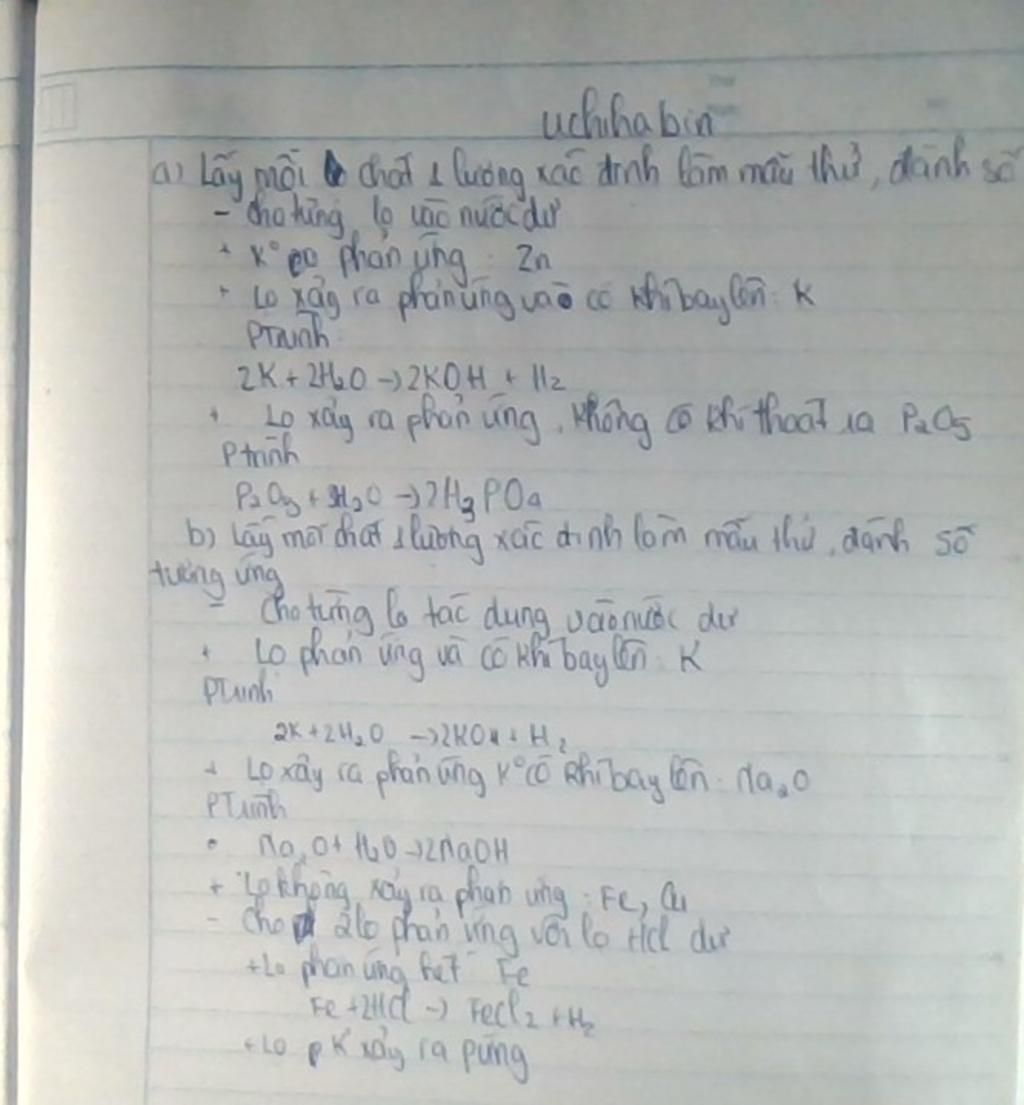 uchihabin
a) Lấy mỗi chất 1 lượng xác định làm mẫu thử, đánh số
- cho từng lọ vào nước dư
+ K° phản ứng : Zn
+ Lọ xảy ra phản ứng và có khí bay lên: K
PTrình
2K + 2H₂O -> 2KOH + H₂
+ Lọ xảy ra phản ứng, không có khí thoát ra P₂O₅
Ptrình
P₂O₅ + 3H₂O -> 2H₃PO₄
b) Lấy mỗi chất 1 lượng xác định làm mẫu thử, đánh số
tương ứng
- Cho từng lọ tác dụng vào nước dư
+ Lọ phản ứng và có khí bay lên: K
PTrình
2K + 2H₂O -> 2KOH + H₂
+ Lọ xảy ra phản ứng K° có khí bay lên: Na₂O
PTrình
Na₂O + H₂O -> 2NaOH
+ Lọ không xảy ra phản ứng : Fe, Cu
- Cho 2 lọ phản ứng với lọ HCl dư
+ Lọ phản ứng hết Fe
Fe + 2HCl -> FeCl₂ + H₂
+ Lọ K xảy ra pứng